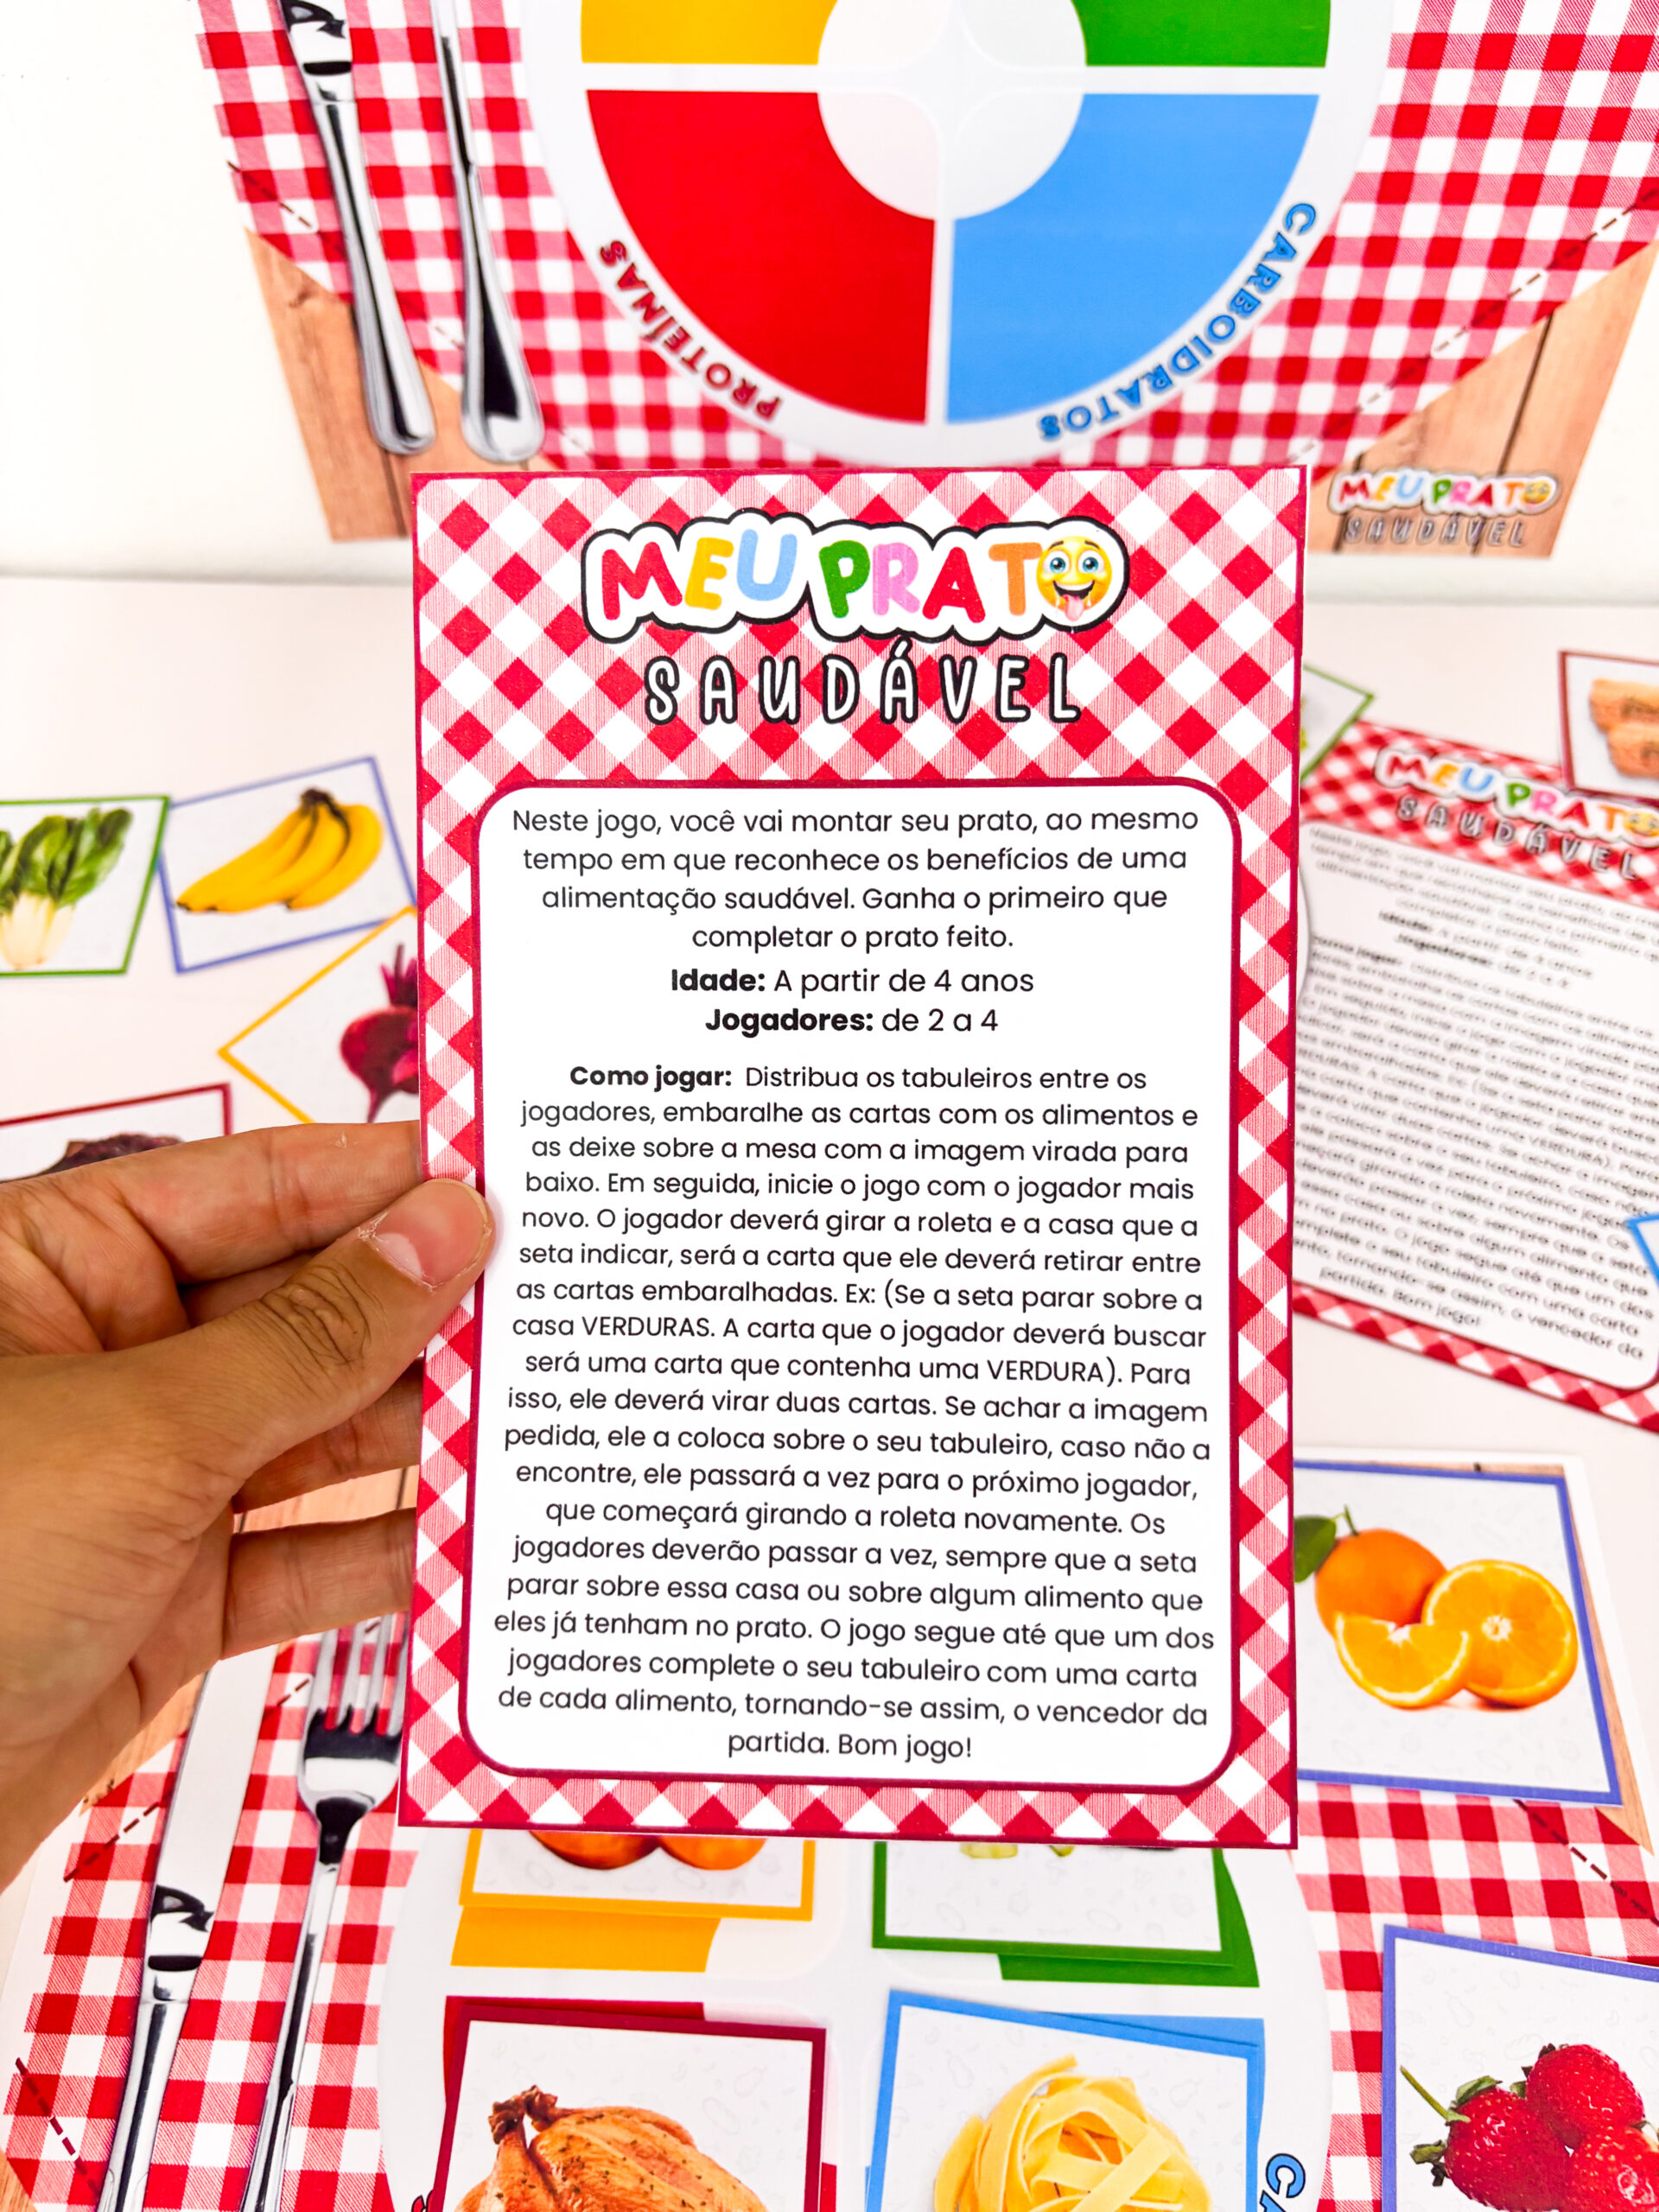 PROTEÍNAS
CARBOIDRATOS
MEU PRATO
SAUDÁVEL
MEU PRATO
SAUDÁVEL
Neste jogo, você vai montar seu prato, ao mesmo
tempo em que reconhece os benefícios de uma
alimentação saudável. Ganha o primeiro que
completar o prato feito.
Idade: A partir de 4 anos
Jogadores: de 2 a 4
Como jogar: Distribua os tabuleiros entre os
jogadores, embaralhe as cartas com os alimentos e
as deixe sobre a mesa com a imagem virada para
baixo. Em seguida, inicie o jogo com o jogador mais
novo. O jogador deverá girar a roleta e a casa que a
seta indicar, será a carta que ele deverá retirar entre
as cartas embaralhadas. Ex: (Se a seta parar sobre a
casa VERDURAS. A carta que o jogador deverá buscar
será uma carta que contenha uma VERDURA). Para
isso, ele deverá virar duas cartas. Se achar a imagem
pedida, ele a coloca sobre o seu tabuleiro, caso não a
encontre, ele passará a vez para o próximo jogador,
que começará girando a roleta novamente. Os
jogadores deverão passar a vez, sempre que a seta
parar sobre essa casa ou sobre algum alimento que
eles já tenham no prato. O jogo segue até que um dos
jogadores complete o seu tabuleiro com uma carta
de cada alimento, tornando-se assim, o vencedor da
partida. Bom jogo!
MEU PRATO
SAUDÁVEL
partida. Bom jogo!
CA